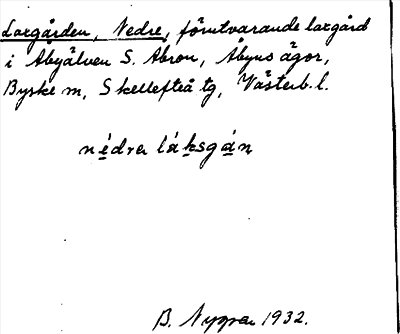 Laxgården, Nedre, förutvarande laxgård
i Åbyälven S. Åbron, Åbyns ägor,
Byske m, Skellefteå tg, Västerb. l.
nédrer láksgán
B. 1932.